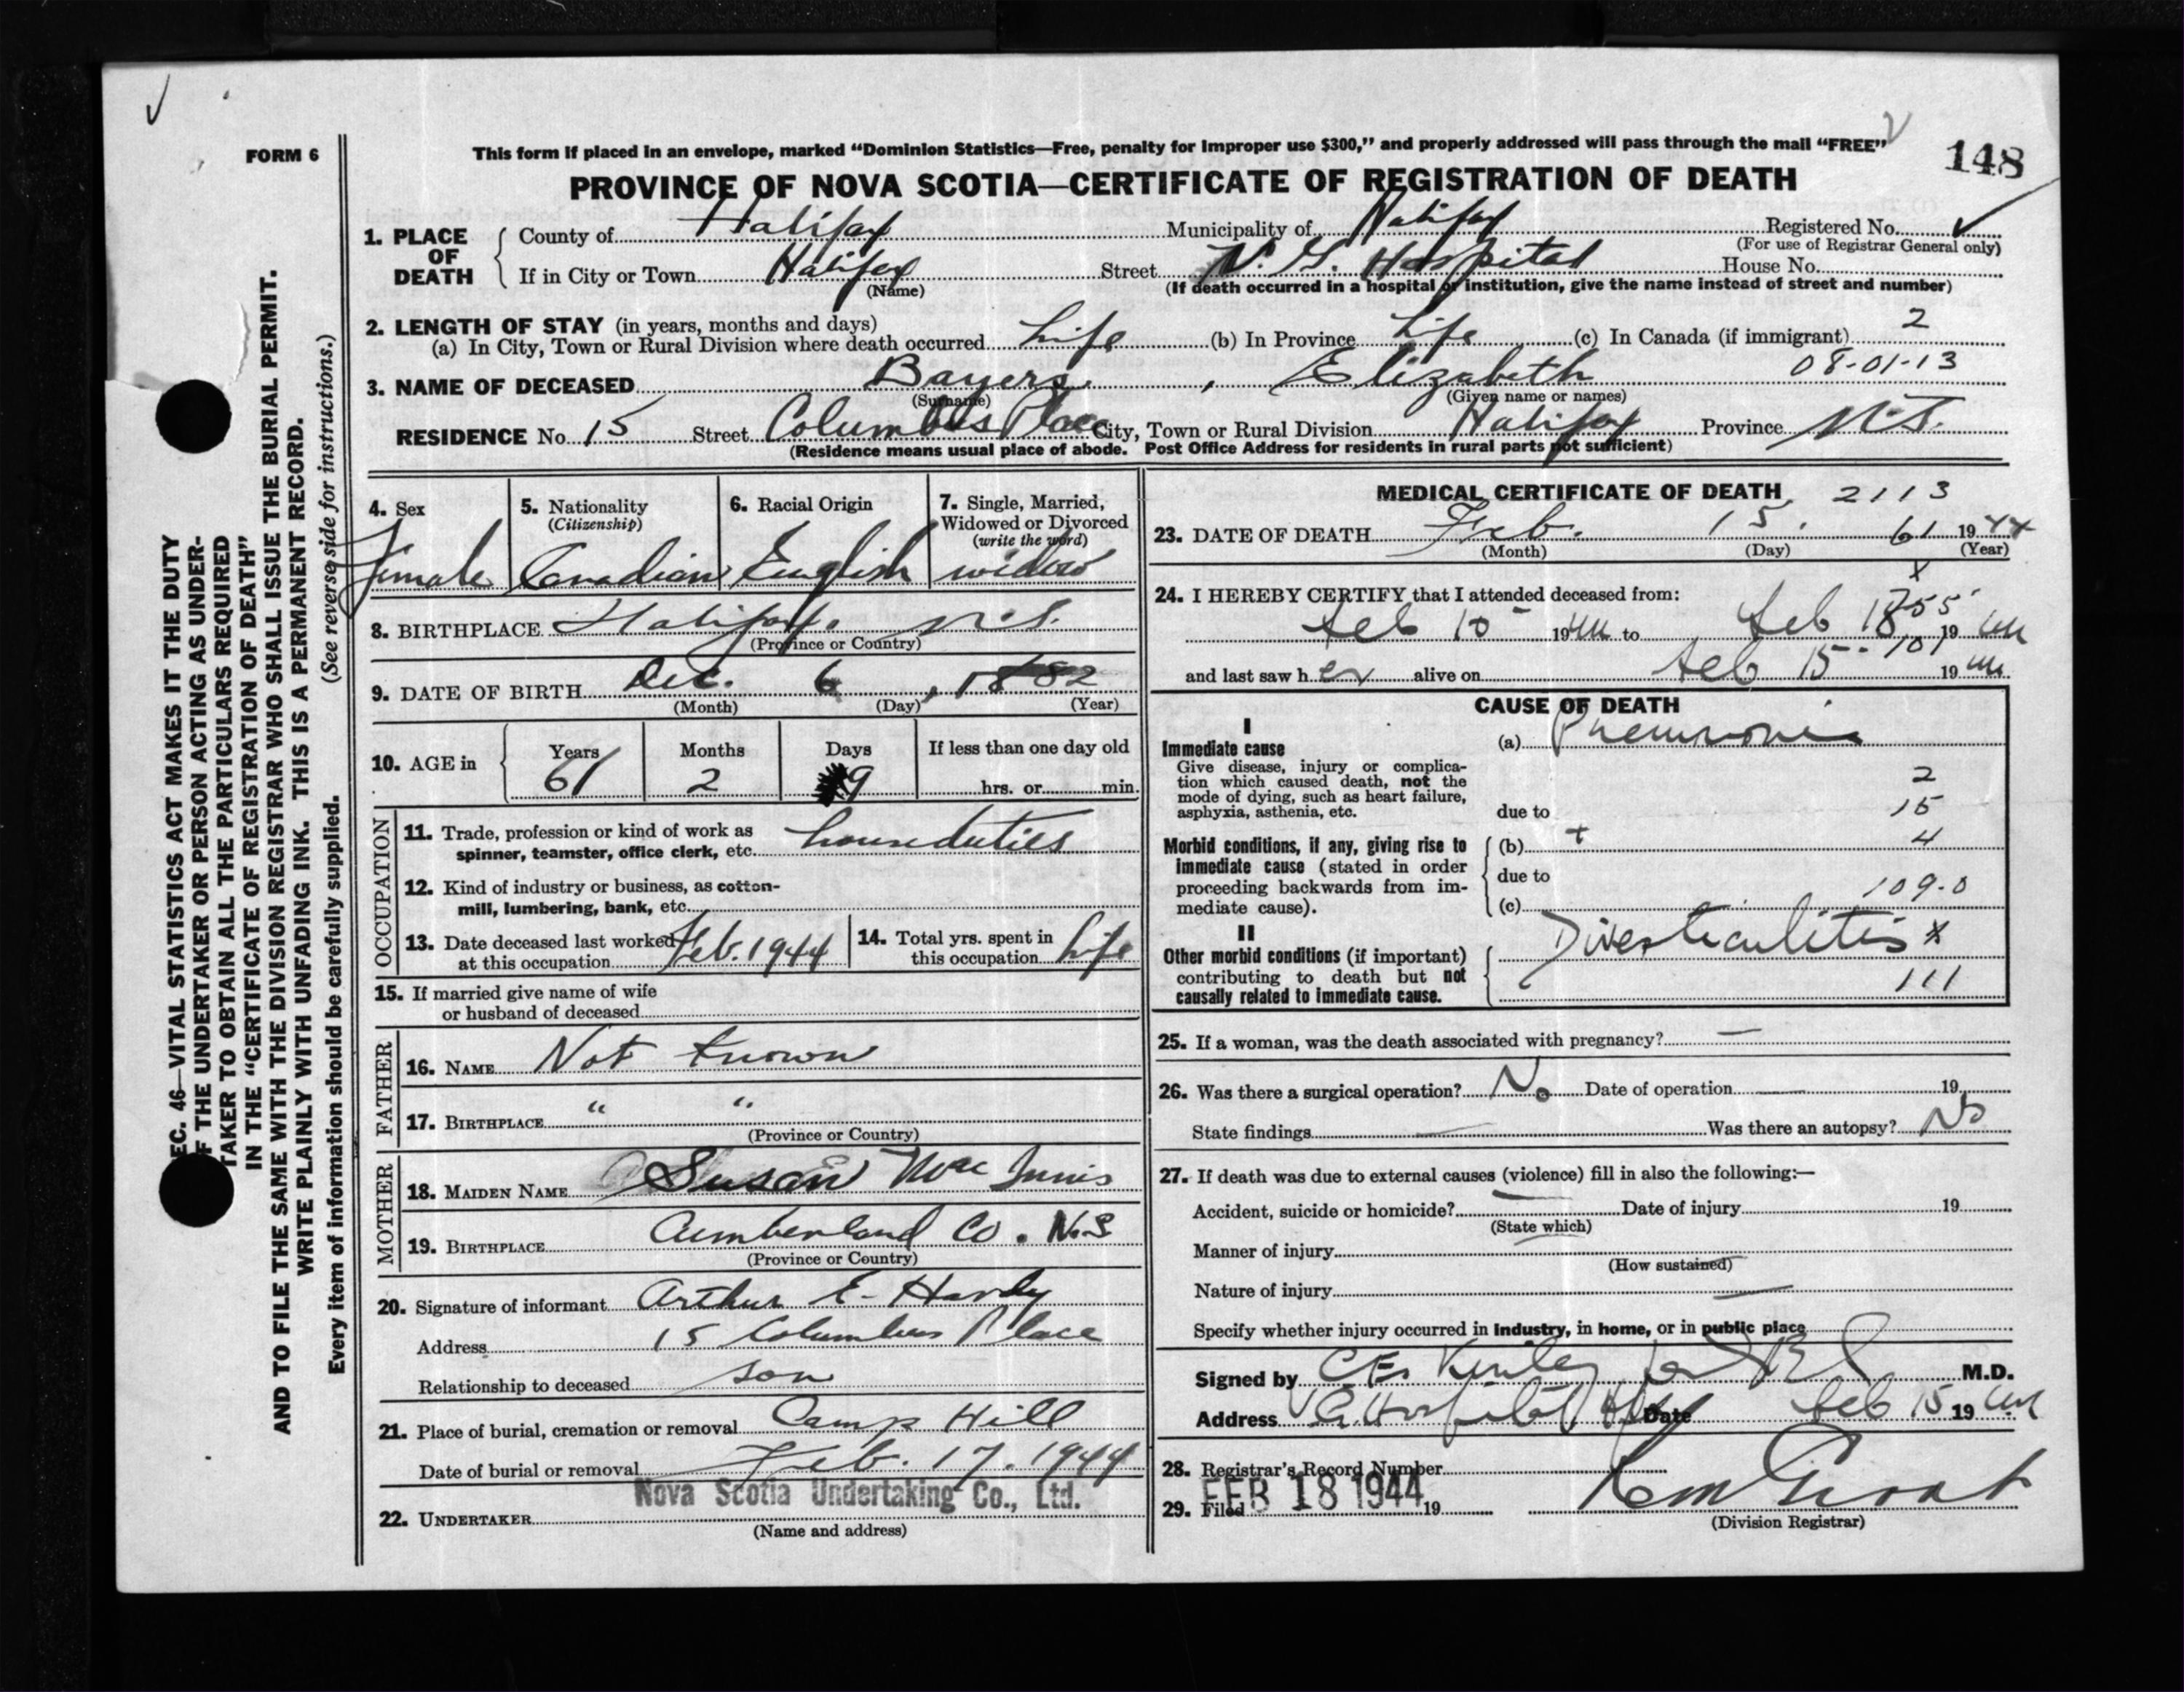 FORM 6
This form if placed in an envelope, marked “Dominion Statistics—Free, penalty for improper use $300,” and properly addressed will pass through the mail “FREE”
148
PROVINCE OF NOVA SCOTIA—CERTIFICATE OF REGISTRATION OF DEATH
1. PLACE OF DEATH
County of Halifax Municipality of Halifax Registered No.
(For use of Registrar General only)
If in City or Town Halifax Street V. G. Hospital House No.
(Name) (If death occurred in a hospital or institution, give the name instead of street and number)
2. LENGTH OF STAY (in years, months and days)
(a) In City, Town or Rural Division where death occurred Life (b) In Province Life (c) In Canada (if immigrant) 2
08-01-13
3. NAME OF DECEASED Bayers, Elizabeth
(Surname) (Given name or names)
RESIDENCE No. 15 Street Columbus Place City, Town or Rural Division Halifax Province N.S.
(Residence means usual place of abode. Post Office Address for residents in rural parts not sufficient)
4. Sex
Female
5. Nationality
(Citizenship)
Canadian
6. Racial Origin
English
7. Single, Married,
Widowed or Divorced
(write the word)
widow
8. BIRTHPLACE Halifax. N.S.
(Province or Country)
9. DATE OF BIRTH Dec. 6, 1882
(Month) (Day) (Year)
10. AGE in
Years Months Days If less than one day old
61 2 9 hrs. or min.
OCCUPATION
11. Trade, profession or kind of work as
spinner, teamster, office clerk, etc. houseduties
12. Kind of industry or business, as cotton-
mill, lumbering, bank, etc.
13. Date deceased last worked
at this occupation Feb. 1944
14. Total yrs. spent in
this occupation Life
15. If married give name of wife
or husband of deceased
FATHER
16. NAME Not known
17. BIRTHPLACE “ “
(Province or Country)
MOTHER
18. MAIDEN NAME Susan MacInnis
19. BIRTHPLACE Cumberland Co. N.S
(Province or Country)
20. Signature of informant Arthur E. Hardy
Address 15 Columbus Place
Relationship to deceased son
21. Place of burial, cremation or removal Camp Hill
Date of burial or removal Feb. 17. 1944
Nova Scotia Undertaking Co., Ltd.
22. UNDERTAKER
(Name and address)
MEDICAL CERTIFICATE OF DEATH 2113
23. DATE OF DEATH Feb. 15. 61 1944
(Month) (Day) (Year)
24. I HEREBY CERTIFY that I attended deceased from:
Feb 10 1944 to Feb 1944
and last saw her alive on Feb 15 1944
CAUSE OF DEATH
I
Immediate cause
Give disease, injury or complica-
tion which caused death, not the
mode of dying, such as heart failure,
asphyxia, asthenia, etc.
(a) Pneumonia
2
due to 15
Morbid conditions, if any, giving rise to
immediate cause (stated in order
proceeding backwards from im-
mediate cause).
(b) + 4
due to
109-0
(c)
II
Other morbid conditions (if important)
contributing to death but not
causally related to immediate cause.
Diverticulitis
111
25. If a woman, was the death associated with pregnancy? —
26. Was there a surgical operation? No Date of operation — 19
State findings — Was there an autopsy? No
27. If death was due to external causes (violence) fill in also the following:—
Accident, suicide or homicide? — Date of injury 19
(State which)
Manner of injury
(How sustained)
Nature of injury —
Specify whether injury occurred in industry, in home, or in public place
Signed by M.D.
Address V G Hospital Date Feb 15 1944
28. Registrar's Record Number
29. Filed FEB 18 1944 19
(Division Registrar)
SEC. 46—VITAL STATISTICS ACT MAKES IT THE DUTY
OF THE UNDERTAKER OR PERSON ACTING AS UNDER-
TAKER TO OBTAIN ALL THE PARTICULARS REQUIRED
IN THE “CERTIFICATE OF REGISTRATION OF DEATH”
AND TO FILE THE SAME WITH THE DIVISION REGISTRAR WHO SHALL ISSUE THE BURIAL PERMIT.
WRITE PLAINLY WITH UNFADING INK. THIS IS A PERMANENT RECORD.
Every item of information should be carefully supplied. (See reverse side for instructions.)